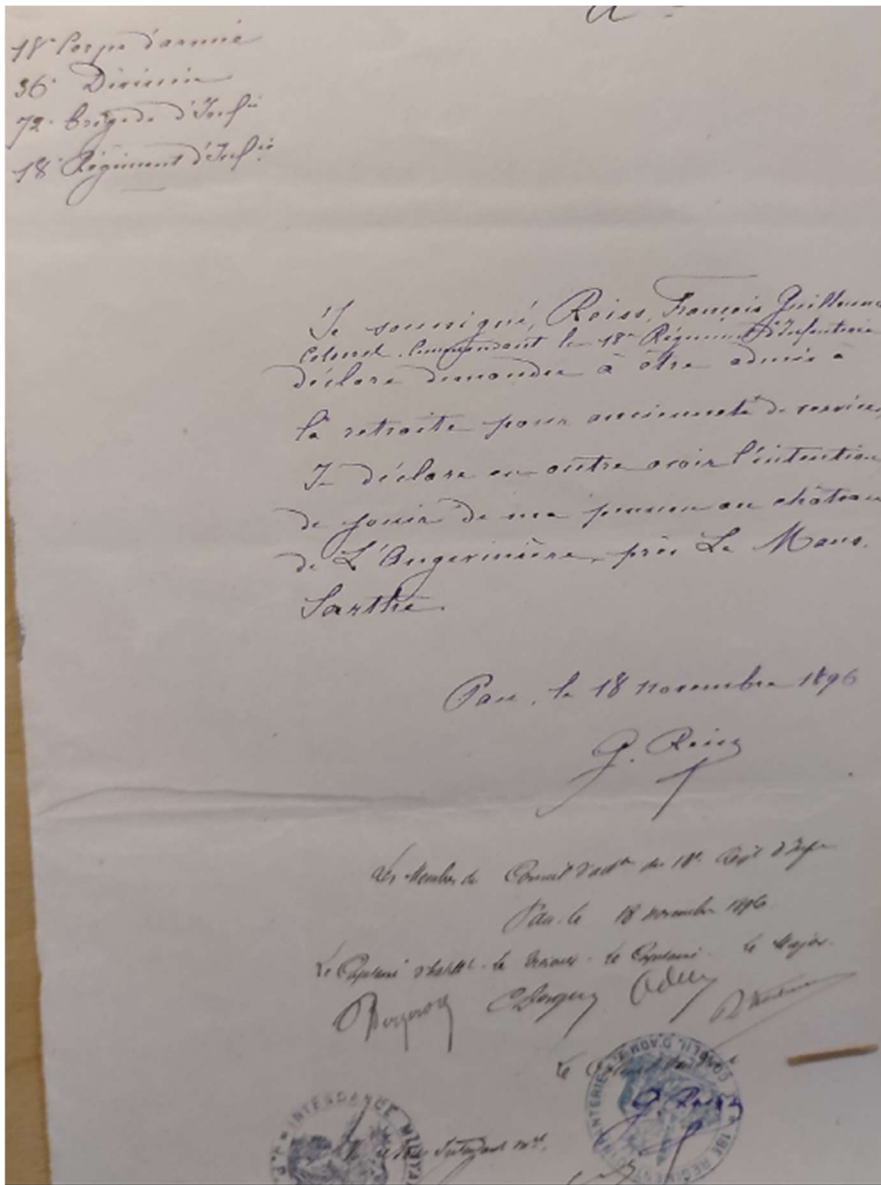 18e Corps d'armée
36e Division
72e Brigade d'Infie
18e Régiment d'Infie
Je soussigné, Reiss, François Guillaume
Colonel Commandant le 18e Régiment d'Infanterie
déclare demander à être admis à
la retraite pour ancienneté de services
Je déclare en outre avoir l'intention
de jouir de ma pension au château
de L'Angevinière, près Le Mans.
Sarthe.
Pau, le 18 novembre 1896
G. Reiss
Les Membres du Conseil d'adon du 18e Régt d'Infie
Pau le 18 novembre 1896
Le Capitaine d'habt Le Trésorier Le Capitaine Le Major
Le Colonel
G. Reiss
INTENDANCE
CONSEIL D'ADMON
18E REGIMENT